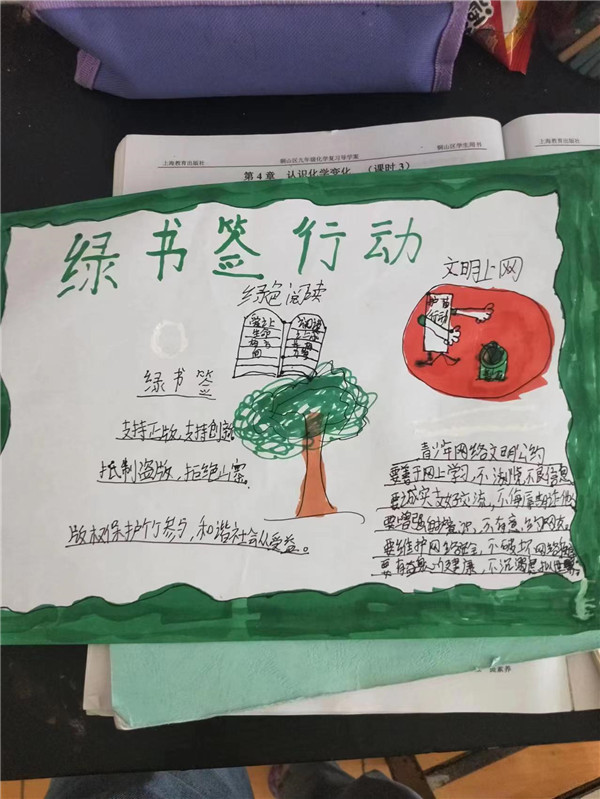 上海教育出版社
铜山区九年级化学复习导学案
铜山区学生用书
第4章 认识化学变化 （课时3）
绿书签行动
文明上网
绿色阅读
护苗
行动
绿书签
支持正版,支持创新
抵制盗版,拒绝山寨.
版权保护你我参与,和谐社会众受益。
青少年网络文明公约
要善于网上学习,不浏览不良信息
要诚实友好交流,不侮辱
要增强
要维护网络安全,不破坏网络
要有益身心健康,不沉溺虚拟